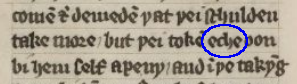 comen & demeden þat þei schulden
take more / but þei toke eche oon
bi hem self a peny / and ī þe takyg̅